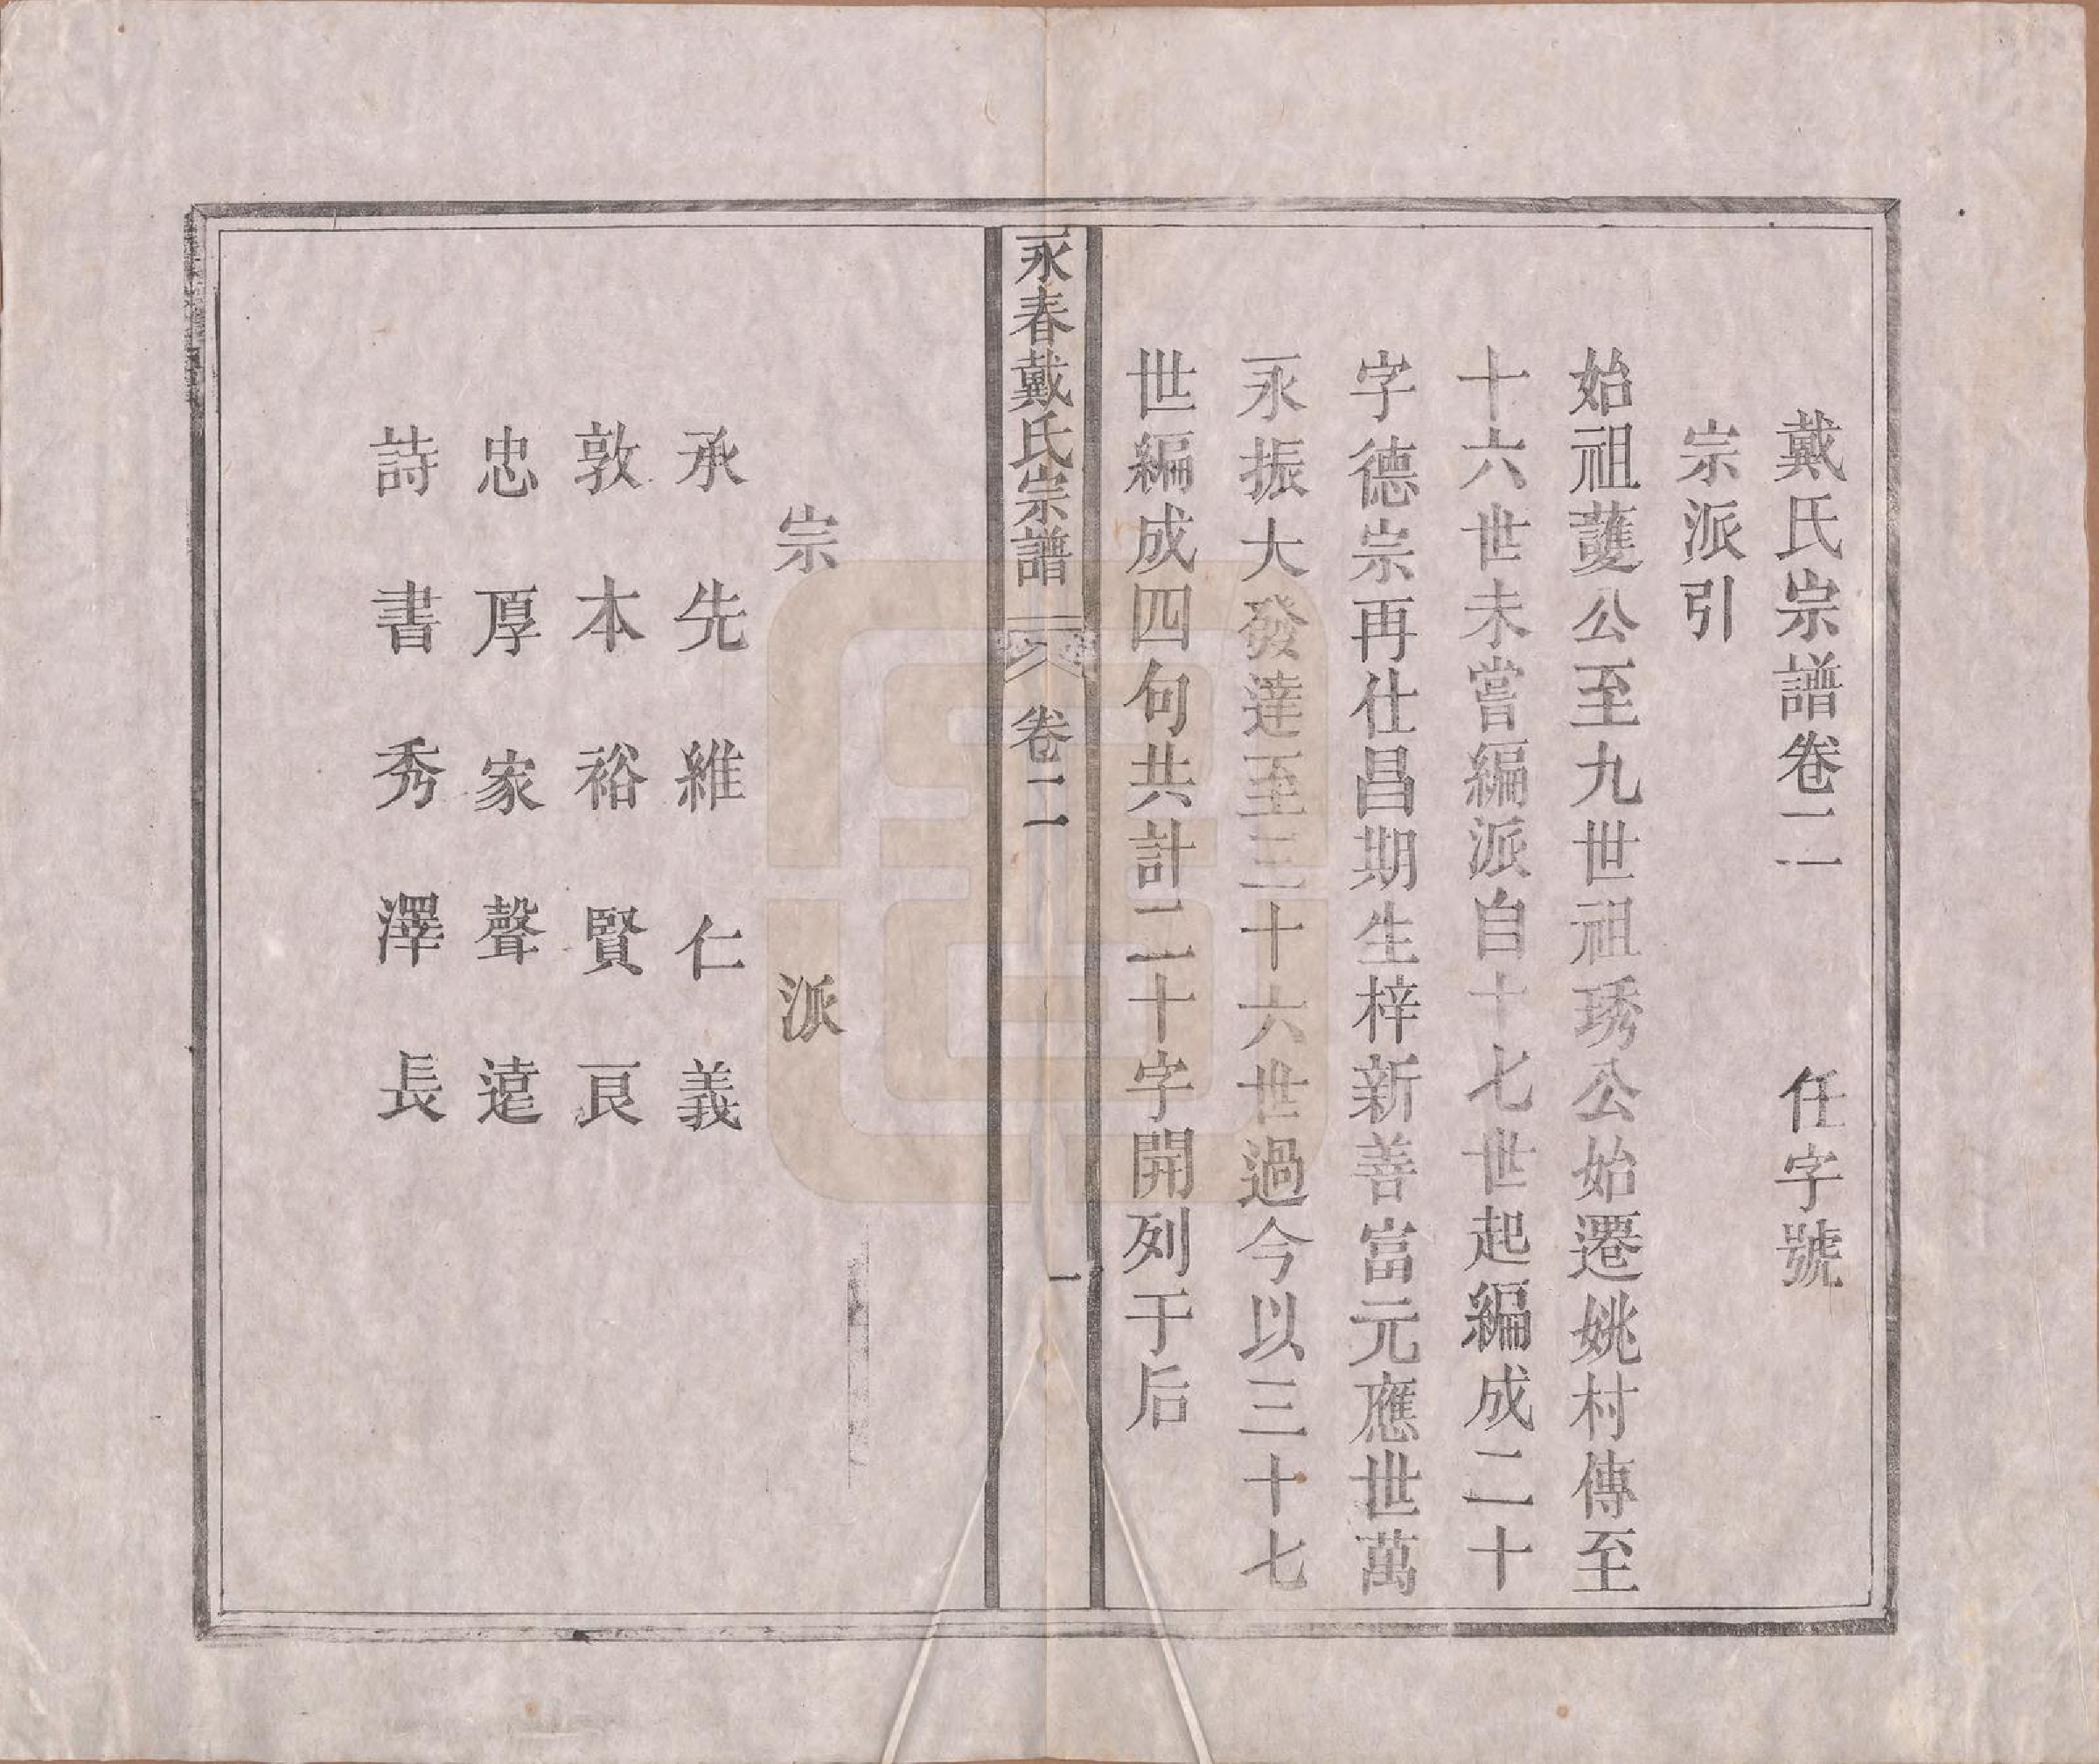 戴氏宗譜卷二 任字號
宗派引
始祖護公至九世祖琇公始遷姚村傳至
十六世未嘗編派自十七世起編成二十
字德宗再仕昌期生梓新善富元應世萬
永振大發達至三十六世過今以三十七
世編成四句共計二十字開列于后
永春戴氏宗譜 卷二 一
宗派
承先維仁義
敦本裕賢良
忠厚家聲遠
詩書秀澤長